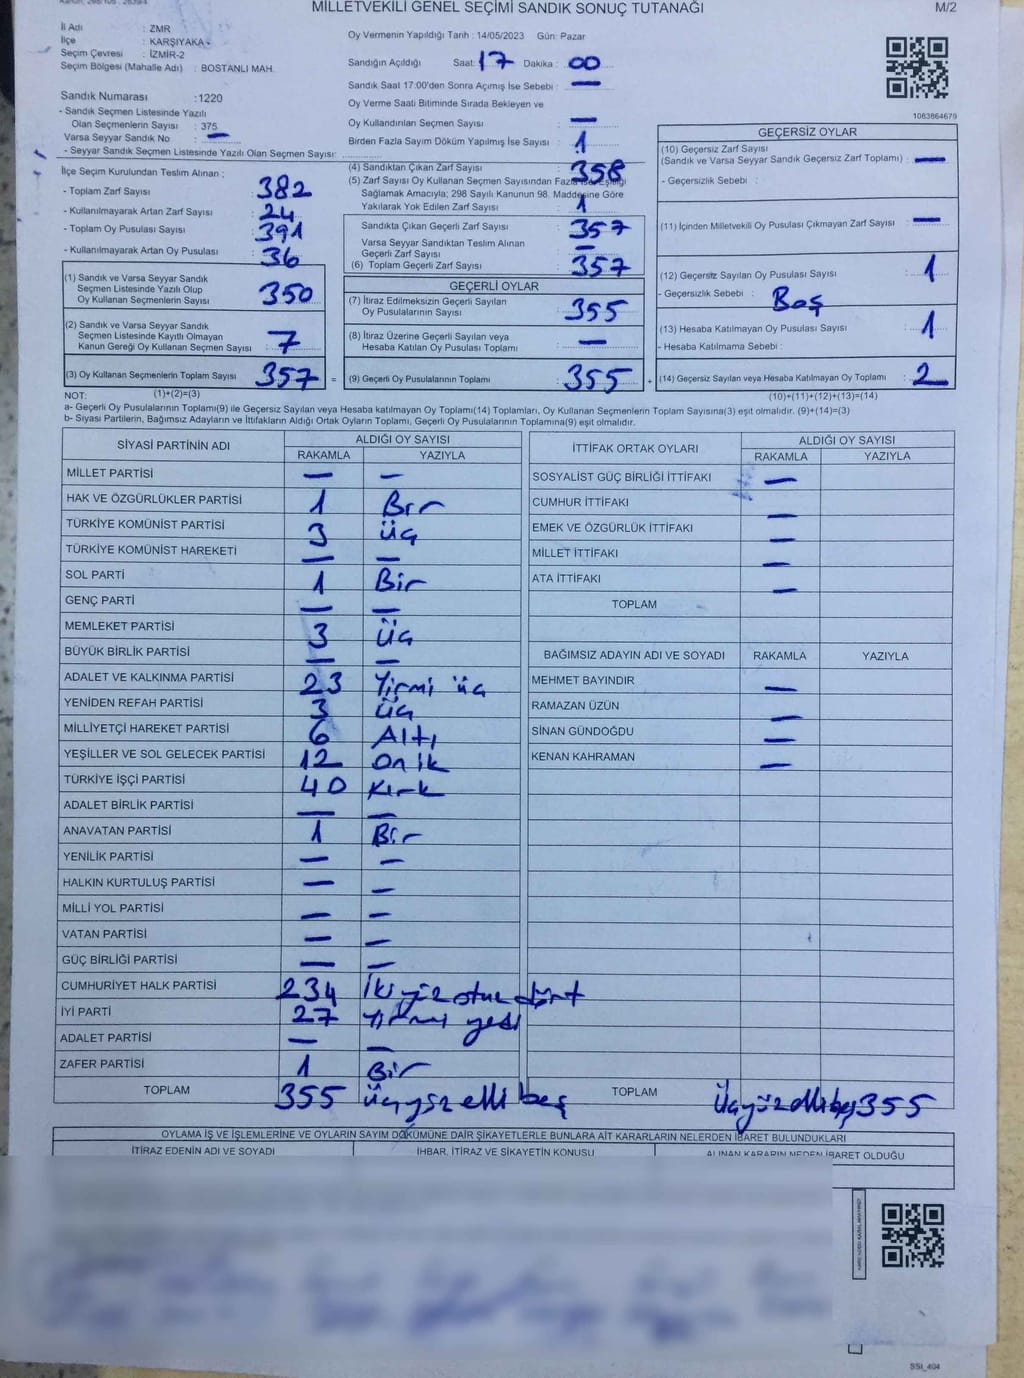 MİLLETVEKİLİ GENEL SEÇİMİ SANDIK SONUÇ TUTANAĞI
M/2
İl Adı : ZMR
İlçe : KARŞIYAKA
Seçim Çevresi : İZMİR-2
Seçim Bölgesi (Mahalle Adı) : BOSTANLI MAH.
Oy Vermenin Yapıldığı Tarih : 14/05/2023 Gün: Pazar
Sandığın Açıldığı Saat: 17 Dakika: 00
Sandık Saat 17:00'den Sonra Açımış İse Sebebi : —
Oy Verme Saati Bitiminde Sırada Bekleyen ve
Oy Kullandırılan Seçmen Sayısı —
Birden Fazla Sayım Döküm Yapılmış İse Sayısı : 1
1083864679
Sandık Numarası : 1220
- Sandık Seçmen Listesinde Yazılı
Olan Seçmenlerin Sayısı : 375
Varsa Seyyar Sandık No : —
- Seyyar Sandık Seçmen Listesinde Yazılı Olan Seçmen Sayısı:
İlçe Seçim Kurulundan Teslim Alınan ;
- Toplam Zarf Sayısı : 382
- Kullanılmayarak Artan Zarf Sayısı : 24
- Toplam Oy Pusulası Sayısı : 391
- Kullanılmayarak Artan Oy Pusulası : 36
(1) Sandık ve Varsa Seyyar Sandık
Seçmen Listesinde Yazılı Olup
Oy Kullanan Seçmenlerin Sayısı : 350
(2) Sandık ve Varsa Seyyar Sandık
Seçmen Listesinde Kayıtlı Olmayan
Kanun Gereği Oy Kullanan Seçmen Sayısı : 7
(3) Oy Kullanan Seçmenlerin Toplam Sayısı : 357 =
(1)+(2)=(3)
(4) Sandıktan Çıkan Zarf Sayısı : 358
(5) Zarf Sayısı Oy Kullanan Seçmen Sayısından Fazla ise, Eşitliği
Sağlamak Amacıyla; 298 Sayılı Kanunun 98. Maddesine Göre
Yakılarak Yok Edilen Zarf Sayısı : 1
Sandıkta Çıkan Geçerli Zarf Sayısı : 357
Varsa Seyyar Sandıktan Teslim Alınan
Geçerli Zarf Sayısı : —
(6) Toplam Geçerli Zarf Sayısı : 357
GEÇERLİ OYLAR
(7) İtiraz Edilmeksizin Geçerli Sayılan
Oy Pusulalarının Sayısı : 355
(8) İtiraz Üzerine Geçerli Sayılan veya
Hesaba Katılan Oy Pusulası Toplamı : —
(9) Geçerli Oy Pusulalarının Toplamı : 355 +
GEÇERSİZ OYLAR
(10) Geçersiz Zarf Sayısı
(Sandık ve Varsa Seyyar Sandık Geçersiz Zarf Toplamı) : —
- Geçersizlik Sebebi :
(11) İçinden Milletvekili Oy Pusulası Çıkmayan Zarf Sayısı : —
(12) Geçersiz Sayılan Oy Pusulası Sayısı : 1
- Geçersizlik Sebebi : Boş
(13) Hesaba Katılmayan Oy Pusulası Sayısı : 1
- Hesaba Katılmama Sebebi :
(14) Geçersiz Sayılan veya Hesaba Katılmayan Oy Toplamı : 2
(10)+(11)+(12)+(13)=(14)
NOT:
a- Geçerli Oy Pusulalarının Toplamı(9) ile Geçersiz Sayılan veya Hesaba katılmayan Oy Toplamı(14) Toplamları, Oy Kullanan Seçmenlerin Toplam Sayısına(3) eşit olmalıdır. (9)+(14)=(3)
b- Siyasi Partilerin, Bağımsız Adayların ve İttifakların Aldığı Ortak Oyların Toplamı, Geçerli Oy Pusulalarının Toplamına(9) eşit olmalıdır.
SİYASİ PARTİNİN ADI ALDIĞI OY SAYISI
RAKAMLA YAZIYLA
MİLLET PARTİSİ — —
HAK VE ÖZGÜRLÜKLER PARTİSİ 1 Bir
TÜRKİYE KOMÜNİST PARTİSİ 3 Üç
TÜRKİYE KOMÜNİST HAREKETİ — —
SOL PARTİ 1 Bir
GENÇ PARTİ — —
MEMLEKET PARTİSİ 3 Üç
BÜYÜK BİRLİK PARTİSİ — —
ADALET VE KALKINMA PARTİSİ 23 Yirmi üç
YENİDEN REFAH PARTİSİ 3 Üç
MİLLİYETÇİ HAREKET PARTİSİ 6 Altı
YEŞİLLER VE SOL GELECEK PARTİSİ 12 Onik
TÜRKİYE İŞÇİ PARTİSİ 40 Kırk
ADALET BİRLİK PARTİSİ — —
ANAVATAN PARTİSİ 1 Bir
YENİLİK PARTİSİ — —
HALKIN KURTULUŞ PARTİSİ — —
MİLLİ YOL PARTİSİ — —
VATAN PARTİSİ — —
GÜÇ BİRLİĞİ PARTİSİ — —
CUMHURİYET HALK PARTİSİ 234 İkiyüzotuzdört
İYİ PARTİ 27 Yirmi yedi
ADALET PARTİSİ — —
ZAFER PARTİSİ 1 Bir
TOPLAM 355 Üçyüzellibeş
İTTİFAK ORTAK OYLARI ALDIĞI OY SAYISI
RAKAMLA YAZIYLA
SOSYALİST GÜÇ BİRLİĞİ İTTİFAKI —
CUMHUR İTTİFAKI —
EMEK VE ÖZGÜRLÜK İTTİFAKI —
MİLLET İTTİFAKI —
ATA İTTİFAKI —
TOPLAM
BAĞIMSIZ ADAYIN ADI VE SOYADI RAKAMLA YAZIYLA
MEHMET BAYINDIR —
RAMAZAN ÜZÜN —
SİNAN GÜNDOĞDU —
KENAN KAHRAMAN —
TOPLAM Üçyüzellibeş 355
OYLAMA İŞ VE İŞLEMLERİNE VE OYLARIN SAYIM DÖKÜMÜNE DAİR ŞİKAYETLERLE BUNLARA AİT KARARLARIN NELERDEN İBARET BULUNDUKLARI
İTİRAZ EDENİN ADI VE SOYADI İHBAR, İTİRAZ VE ŞİKAYETİN KONUSU ALINAN KARARIN NEDEN İBARET OLDUĞU
SSI_404